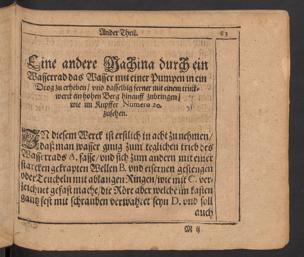 Ander Theil. 83
Eine andere Machina durch ein
Wasserrad das Wasser mit einer Pumpen in ein
Trog zu erheben / vnd dasselbig ferner mit einem
werck ein hohen Berg hinauff zubringen /
wie im Kupffer Numero 20.
zusehen.
IN diesem Werck ist erstlich in acht zu nehmen /
daß man wasser gnug zum täglichen trieb des
Wasserrads A. fasse / vnd sich zum andern mit einer
starcken gekrapten Wellen B. vnd eisernen gestengen
oder Teucheln mit ablangen Ringen / wie mit C. ver-
zeichnet gefast mache, die Röre aber welche im kasten
gantz fest mit schrauben verwahret seyn D. vnd soll
auch
M ij